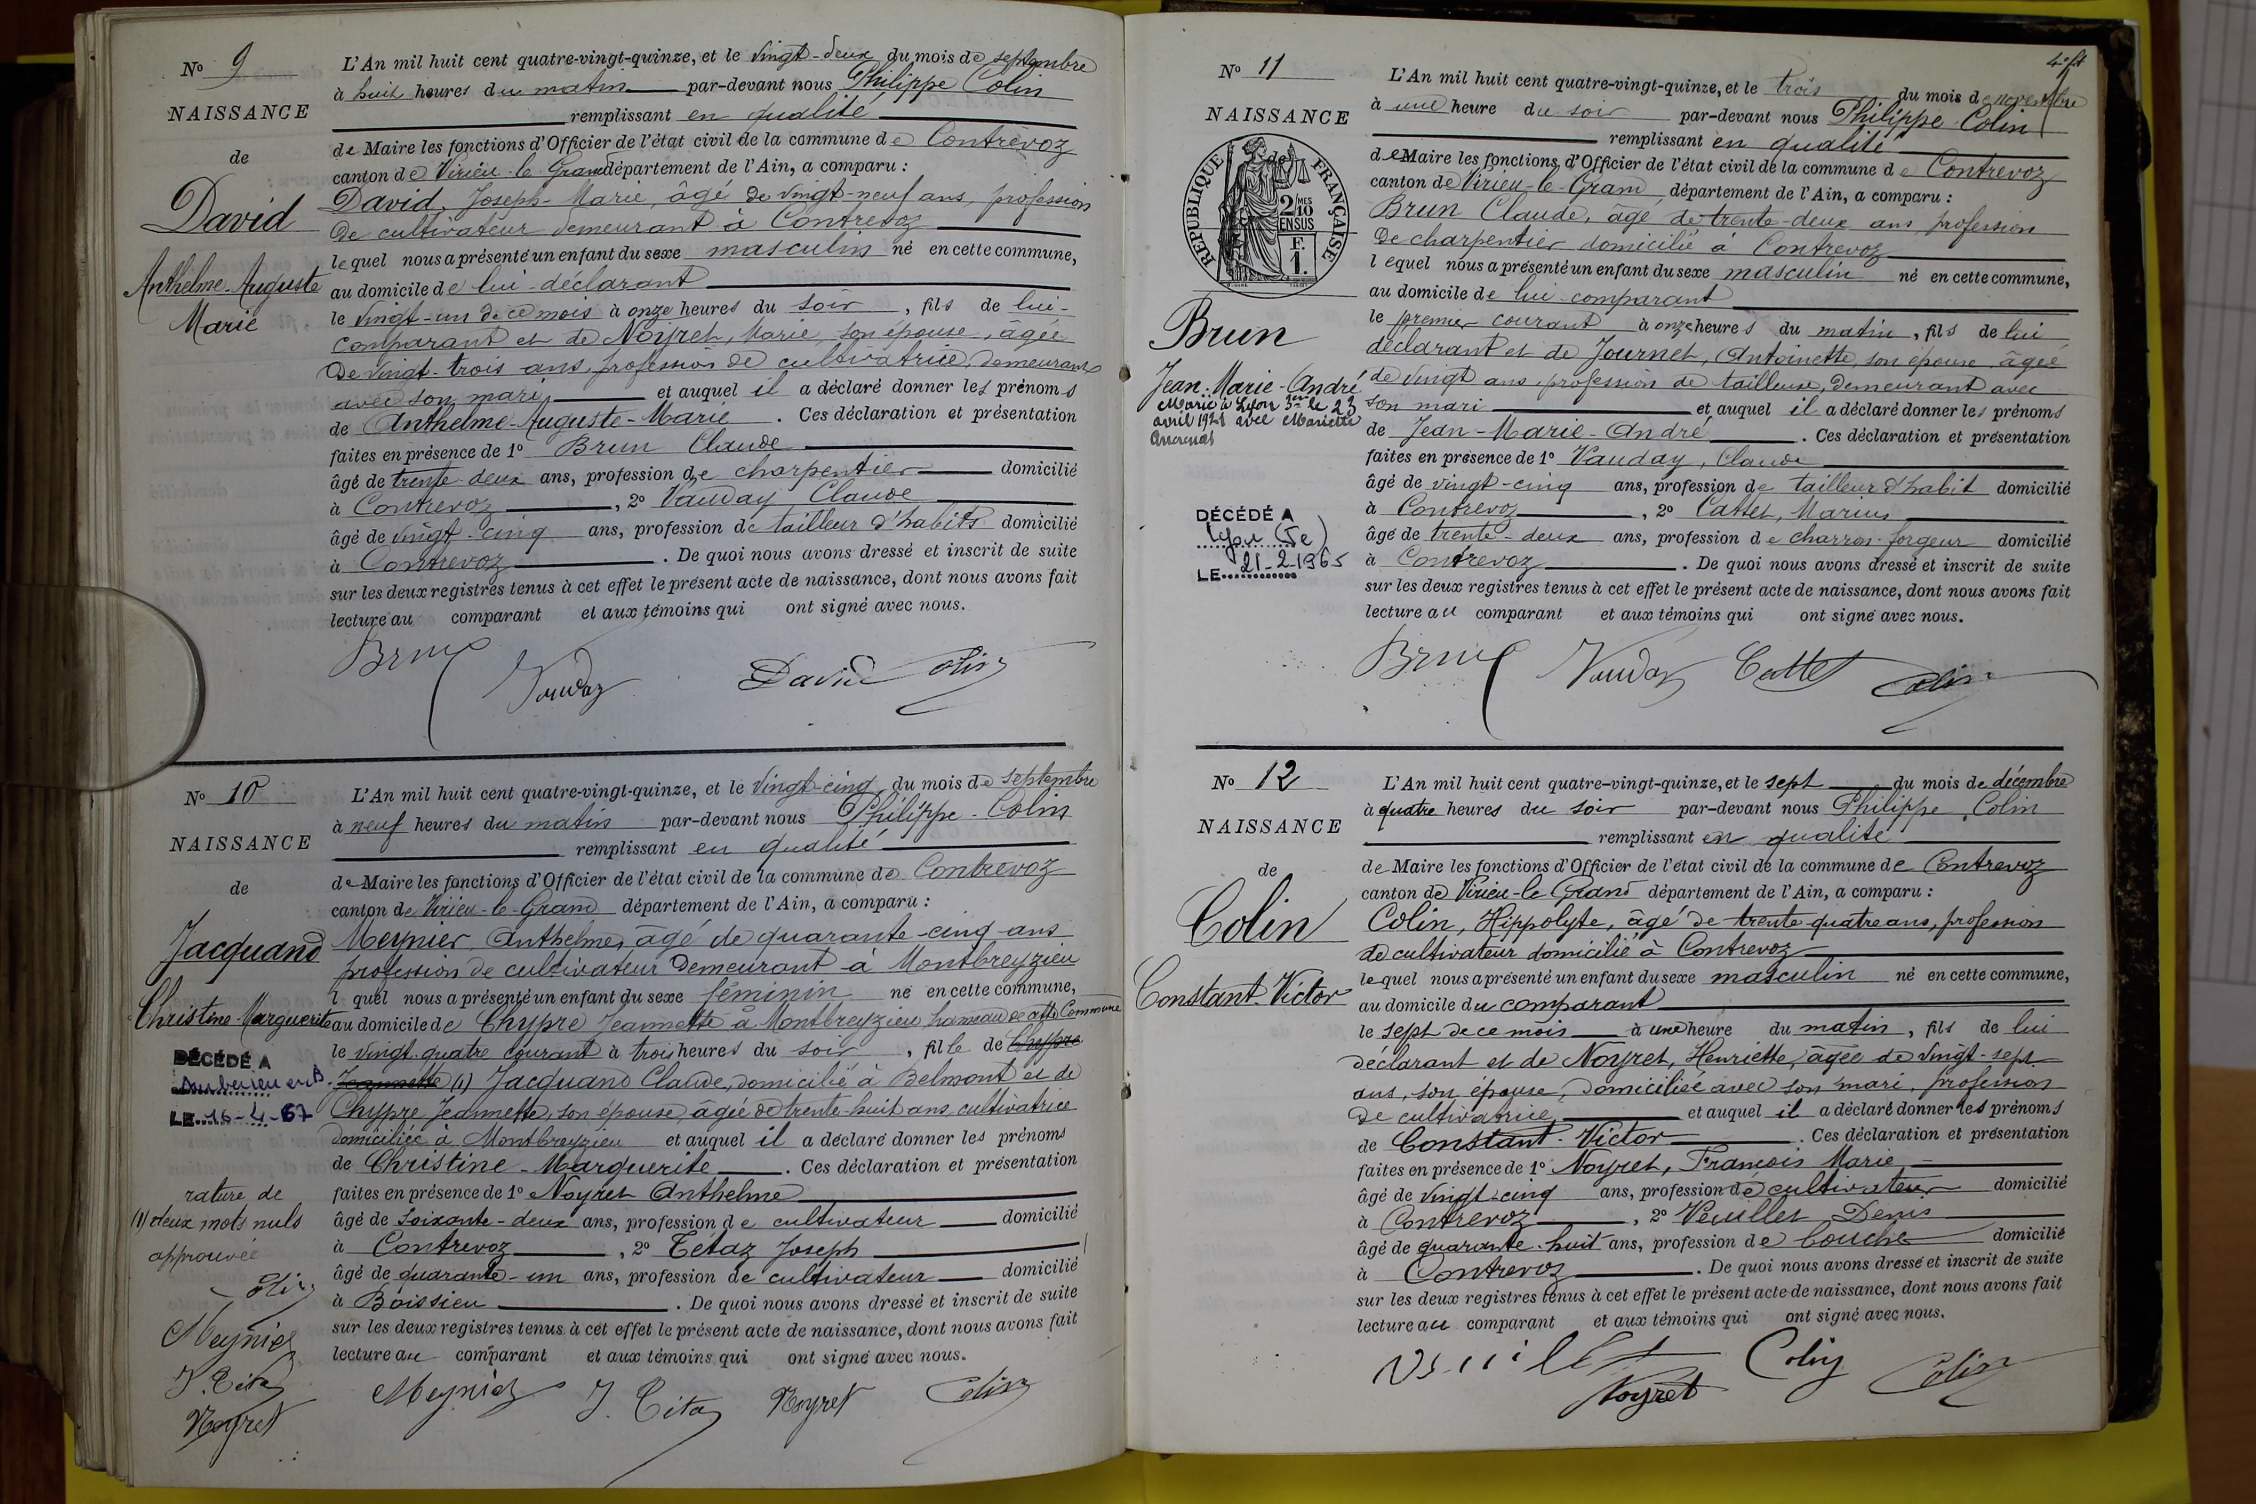 No 9
NAISSANCE
de
David
Anthelme-Auguste
Marie
L'An mil huit cent quatre-vingt-quinze, et le vingt-deux du mois de septembre
à huit heures du matin par-devant nous Philippe Colin
remplissant en qualité
de Maire les fonctions d'Officier de l'état civil de la commune de Contrevoz
canton de Virieu-le-Grand département de l'Ain, a comparu :
David, Joseph-Marie, âgé de vingt-neuf ans, profession
de cultivateur demeurant à Contrevoz
lequel nous a présenté un enfant du sexe masculin né en cette commune,
au domicile de lui-déclarant
le vingt-un de ce mois à onze heures du soir, fils de lui-
comparant et de Noyret, Marie, son épouse, âgée
de vingt-trois ans, profession de cultivatrice, demeurant
avec son mari, et auquel il a déclaré donner les prénoms
de Anthelme-Auguste-Marie. Ces déclaration et présentation
faites en présence de 1o Brun Claude
âgé de trente-deux ans, profession de charpentier domicilié
à Contrevoz, 2o Vauday Claude
âgé de vingt-cinq ans, profession de tailleur d'habits domicilié
à Contrevoz. De quoi nous avons dressé et inscrit de suite
sur les deux registres tenus à cet effet le présent acte de naissance, dont nous avons fait
lecture au comparant et aux témoins qui ont signé avec nous.
Brun Vauday David Colin
No 10
NAISSANCE
de
Jacquand
Christine-Marguerite
DÉCÉDÉ A
Ambérieu en B.
LE 16-4-67
rature de
(1) deux mots nuls
approuvée
Colin
Meynier
J. Tétaz
Noyret
L'An mil huit cent quatre-vingt-quinze, et le vingt-cinq du mois de septembre
à neuf heures du matin par-devant nous Philippe-Colin
remplissant en qualité
de Maire les fonctions d'Officier de l'état civil de la commune de Contrevoz
canton de Virieu-le-Grand département de l'Ain, a comparu :
Meynier Anthelme, âgé de quarante-cinq ans
profession de cultivateur demeurant à Montbreyzieu
l quel nous a présenté un enfant du sexe féminin né en cette commune,
au domicile de Chypre Jeannette à Montbreyzieu hameau de cette Commune
le vingt-quatre courant à trois heures du soir, fille de Chypre
Jeannette (1) Jacquand Claude, domicilié à Belmont et de
Chypre Jeannette, son épouse, âgée de trente-huit ans, cultivatrice
domiciliée à Montbreyzieu et auquel il a déclaré donner les prénoms
de Christine-Marguerite. Ces déclaration et présentation
faites en présence de 1o Noyret Anthelme
âgé de soixante-deux ans, profession de cultivateur domicilié
à Contrevoz, 2o Tétaz Joseph
âgé de quarante-un ans, profession de cultivateur domicilié
à Boissieu. De quoi nous avons dressé et inscrit de suite
sur les deux registres tenus à cet effet le présent acte de naissance, dont nous avons fait
lecture au comparant et aux témoins qui ont signé avec nous.
Meynier J. Tétaz Noyret Colin
No 11
NAISSANCE
de
RÉPUBLIQUE FRANÇAISE
2/10 MES
EN SUS
F.
1.
Brun
Jean-Marie-André
Marié à Lyon 3e le 23
avril 1921 avec Mariette
DÉCÉDÉ A
Lyon (5e)
LE 21-2-1965
L'An mil huit cent quatre-vingt-quinze, et le trois du mois de novembre
à une heure du soir par-devant nous Philippe Colin
remplissant en qualité
de Maire les fonctions d'Officier de l'état civil de la commune de Contrevoz
canton de Virieu-le-Grand département de l'Ain, a comparu :
Brun Claude, âgé de trente-deux ans profession
de charpentier domicilié à Contrevoz
lequel nous a présenté un enfant du sexe masculin né en cette commune,
au domicile de lui-comparant
le premier courant à onze heures du matin, fils de lui
déclarant et de Journet, Antoinette, son épouse, âgée
de vingt ans, profession de tailleuse, demeurant avec
son mari et auquel il a déclaré donner les prénoms
de Jean-Marie-André. Ces déclaration et présentation
faites en présence de 1o Vauday, Claude
âgé de vingt-cinq ans, profession de tailleur d'habit domicilié
à Contrevoz, 2o Cattet, Marius
âgé de trente-deux ans, profession de charron-forgeur domicilié
à Contrevoz. De quoi nous avons dressé et inscrit de suite
sur les deux registres tenus à cet effet le présent acte de naissance, dont nous avons fait
lecture au comparant et aux témoins qui ont signé avec nous.
Brun Vauday Cattet Colin
No 12
NAISSANCE
de
Colin
Constant-Victor
L'An mil huit cent quatre-vingt-quinze, et le sept du mois de décembre
à quatre heures du soir par-devant nous Philippe Colin
remplissant en qualité
de Maire les fonctions d'Officier de l'état civil de la commune de Contrevoz
canton de Virieu-le-Grand département de l'Ain, a comparu :
Colin, Hippolyte, âgé de trente-quatre ans, profession
de cultivateur domicilié à Contrevoz
lequel nous a présenté un enfant du sexe masculin né en cette commune,
au domicile du comparant
le sept de ce mois à une heure du matin, fils de lui
déclarant et de Noyret, Henriette, âgée de vingt-sept
ans, son épouse, domiciliée avec son mari, profession
de cultivatrice, et auquel il a déclaré donner les prénoms
de Constant-Victor. Ces déclaration et présentation
faites en présence de 1o Noyret, François Marie
âgé de vingt-cinq ans, profession de cultivateur domicilié
à Contrevoz, 2o Veuillet Denis
âgé de quarante-huit ans, profession de domicilié
à Contrevoz. De quoi nous avons dressé et inscrit de suite
sur les deux registres tenus à cet effet le présent acte de naissance, dont nous avons fait
lecture au comparant et aux témoins qui ont signé avec nous.
Veuillet Noyret Colin Colin